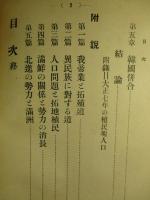 目次
(3)
第五章 韓國併合
結論
附錄 日大正七年の植民地人口
附說
第一篇 我蠶業と拓殖道
第二篇 異民族に對する道
第三篇 人口問題と拓地植民
第四篇 滿鮮の關係と勢力の消長
第五篇 北進の勢力と滿洲
目次 終